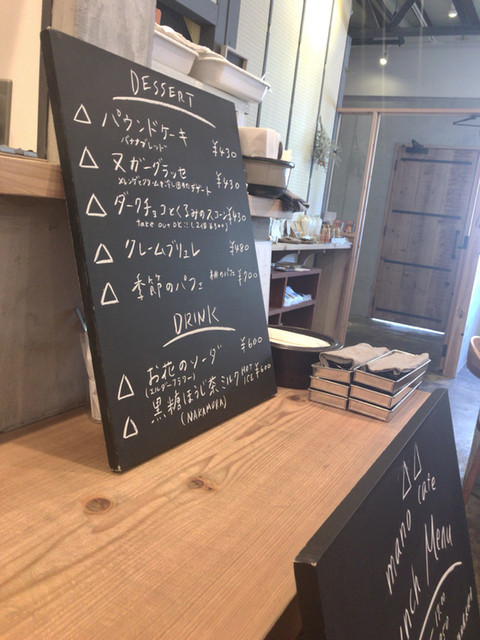 DESSERT
△ パウンドケーキ ¥430
バナナブレッド
△ ヌガーグラッセ ¥430
△ ダークチョコとくるみのスコーン ¥430
take out
△ クレームブリュレ ¥480
△ 季節のパフェ 桃のパフェ ¥700
DRINK
△ お花のソーダ ¥600
(エルダーフラワー)
△ 黒糖ほうじ茶ミルク HOT ICE ¥600
(NAKAMURA)
△△
mano cafe
nch Menu